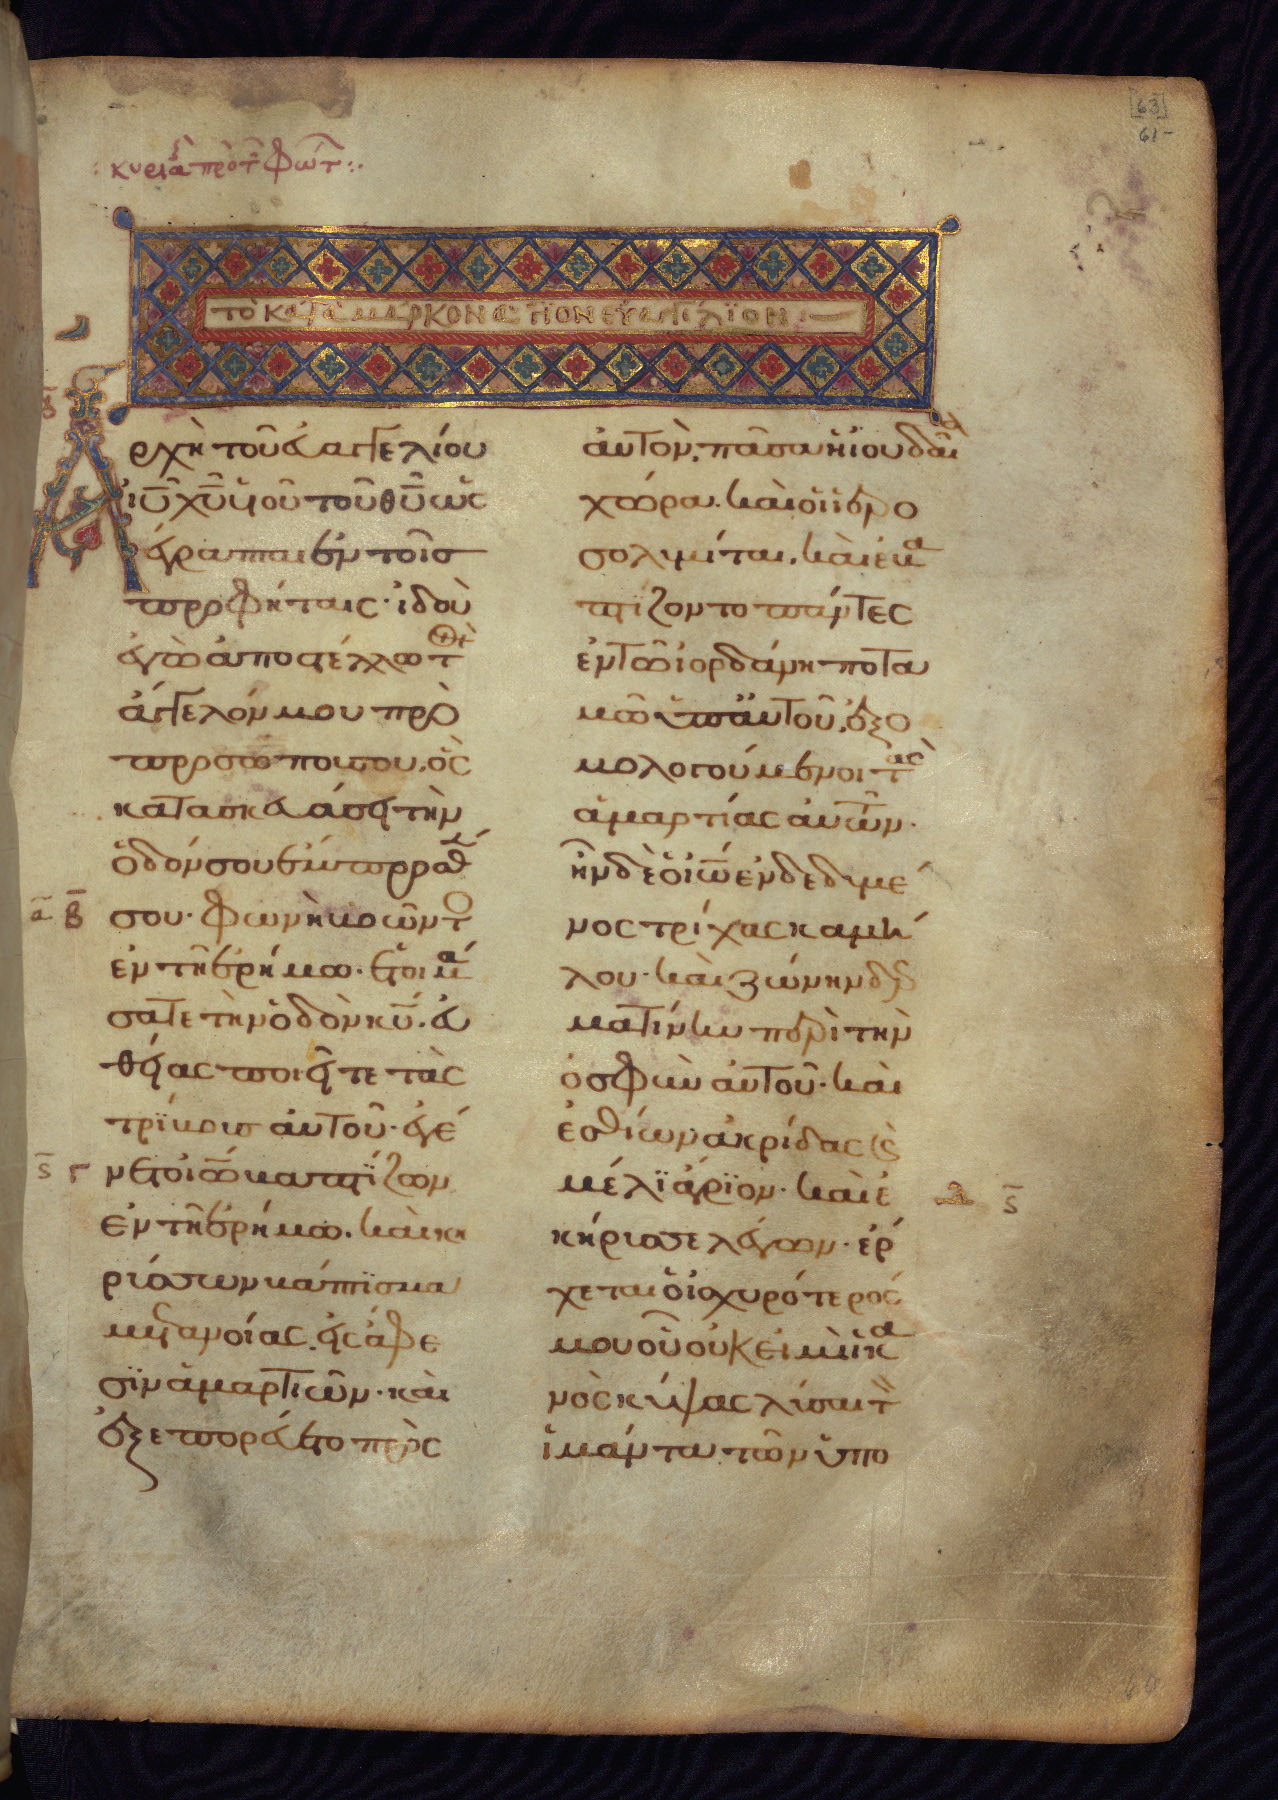 [63]
61-
κυριακ πρὸ τ φώτ
τὸ κατὰ μάρκον ἅγιον εὐαγγέλιον
Ἀρχὴ τοῦ εὐαγγελίου
ιῦ χῦ υἱοῦ τοῦ θῦ ὡς
γέγραπται ἐν τοῖσ
προφήταις· ἰδοὺ
ἐγὼ ἀποστέλλω τὸν
ἄγγελόν μου πρὸ
προσώπου σου, ὃς
κατασκευάσει τὴν
ὁδόν σου ἔμπροσθέν
σου· φωνὴ βοῶντο
ἐν τῇ ἐρήμω· ἑτοιμά
σατε τὴν ὁδὸν κῦ. εὐ
θείας ποιεῖτε τὰς
τρίβουσ αὐτοῦ· ἐγέ
νετο ἰω βαπτίζων
ἐν τῇ ἐρήμω. καὶ κη
ρύσσων βάπτϊσμα
μετανοίας, εἰς ἄφε
σϊν ἁμαρτιῶν· καὶ
ἐξεπορεύετο πρὸς
αὐτὸν, πᾶσα ἡ ἰουδαία
χώρα. καὶ οἱ ἱερο
σολυμίται. καὶ ἐβα
πτίζοντο πάντες
ἐν τῶ ἰορδάνη ποτα
μῶ ὑπ αὐτοῦ, ἐξο
μολογούμενοι τὰς
ἁμαρτίας αὐτῶν·
ἦν δὲ ὁ ἰω ἐνδεδυμέ
νος τρίχας καμή
λου· καὶ ζώνην δερ
ματίνην περὶ τὴν
ὀσφὺν αὐτοῦ· καὶ
ἐσθίων ἀκρίδας κ
μέλϊ ἄγρϊον· καὶ ἐ
κήρυσσε λέγων· ἔρ
χεται ὁ ἰσχυρότερός
μου οὗ οὐκ εἰμὶ ἱκα
νὸς κύψας λύσαι τ
ἱμάντα τῶν ὑπο
α β
ς γ
ς